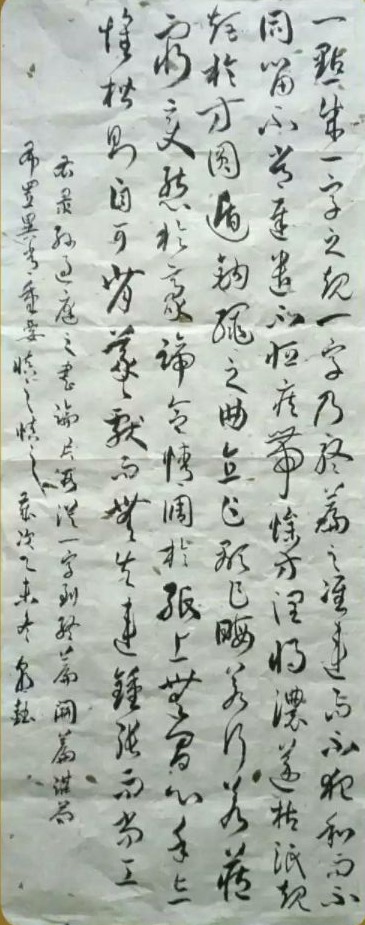 一點成一字之規一字乃終篇之准違而不犯和而不
同留不常遲遣不恒疾帶燥方潤將濃遂枯泯規
矩於方圓遁鉤繩之曲直乍顯乍晦若行若藏
窮變態於毫端合情調於紙上無間心手忘
懷楷則自可背羲獻而無失違鍾張而尚工
右录孫過庭之書論片段從一字到終篇開篇謀
布置重要慎之慎之歲次乙未冬